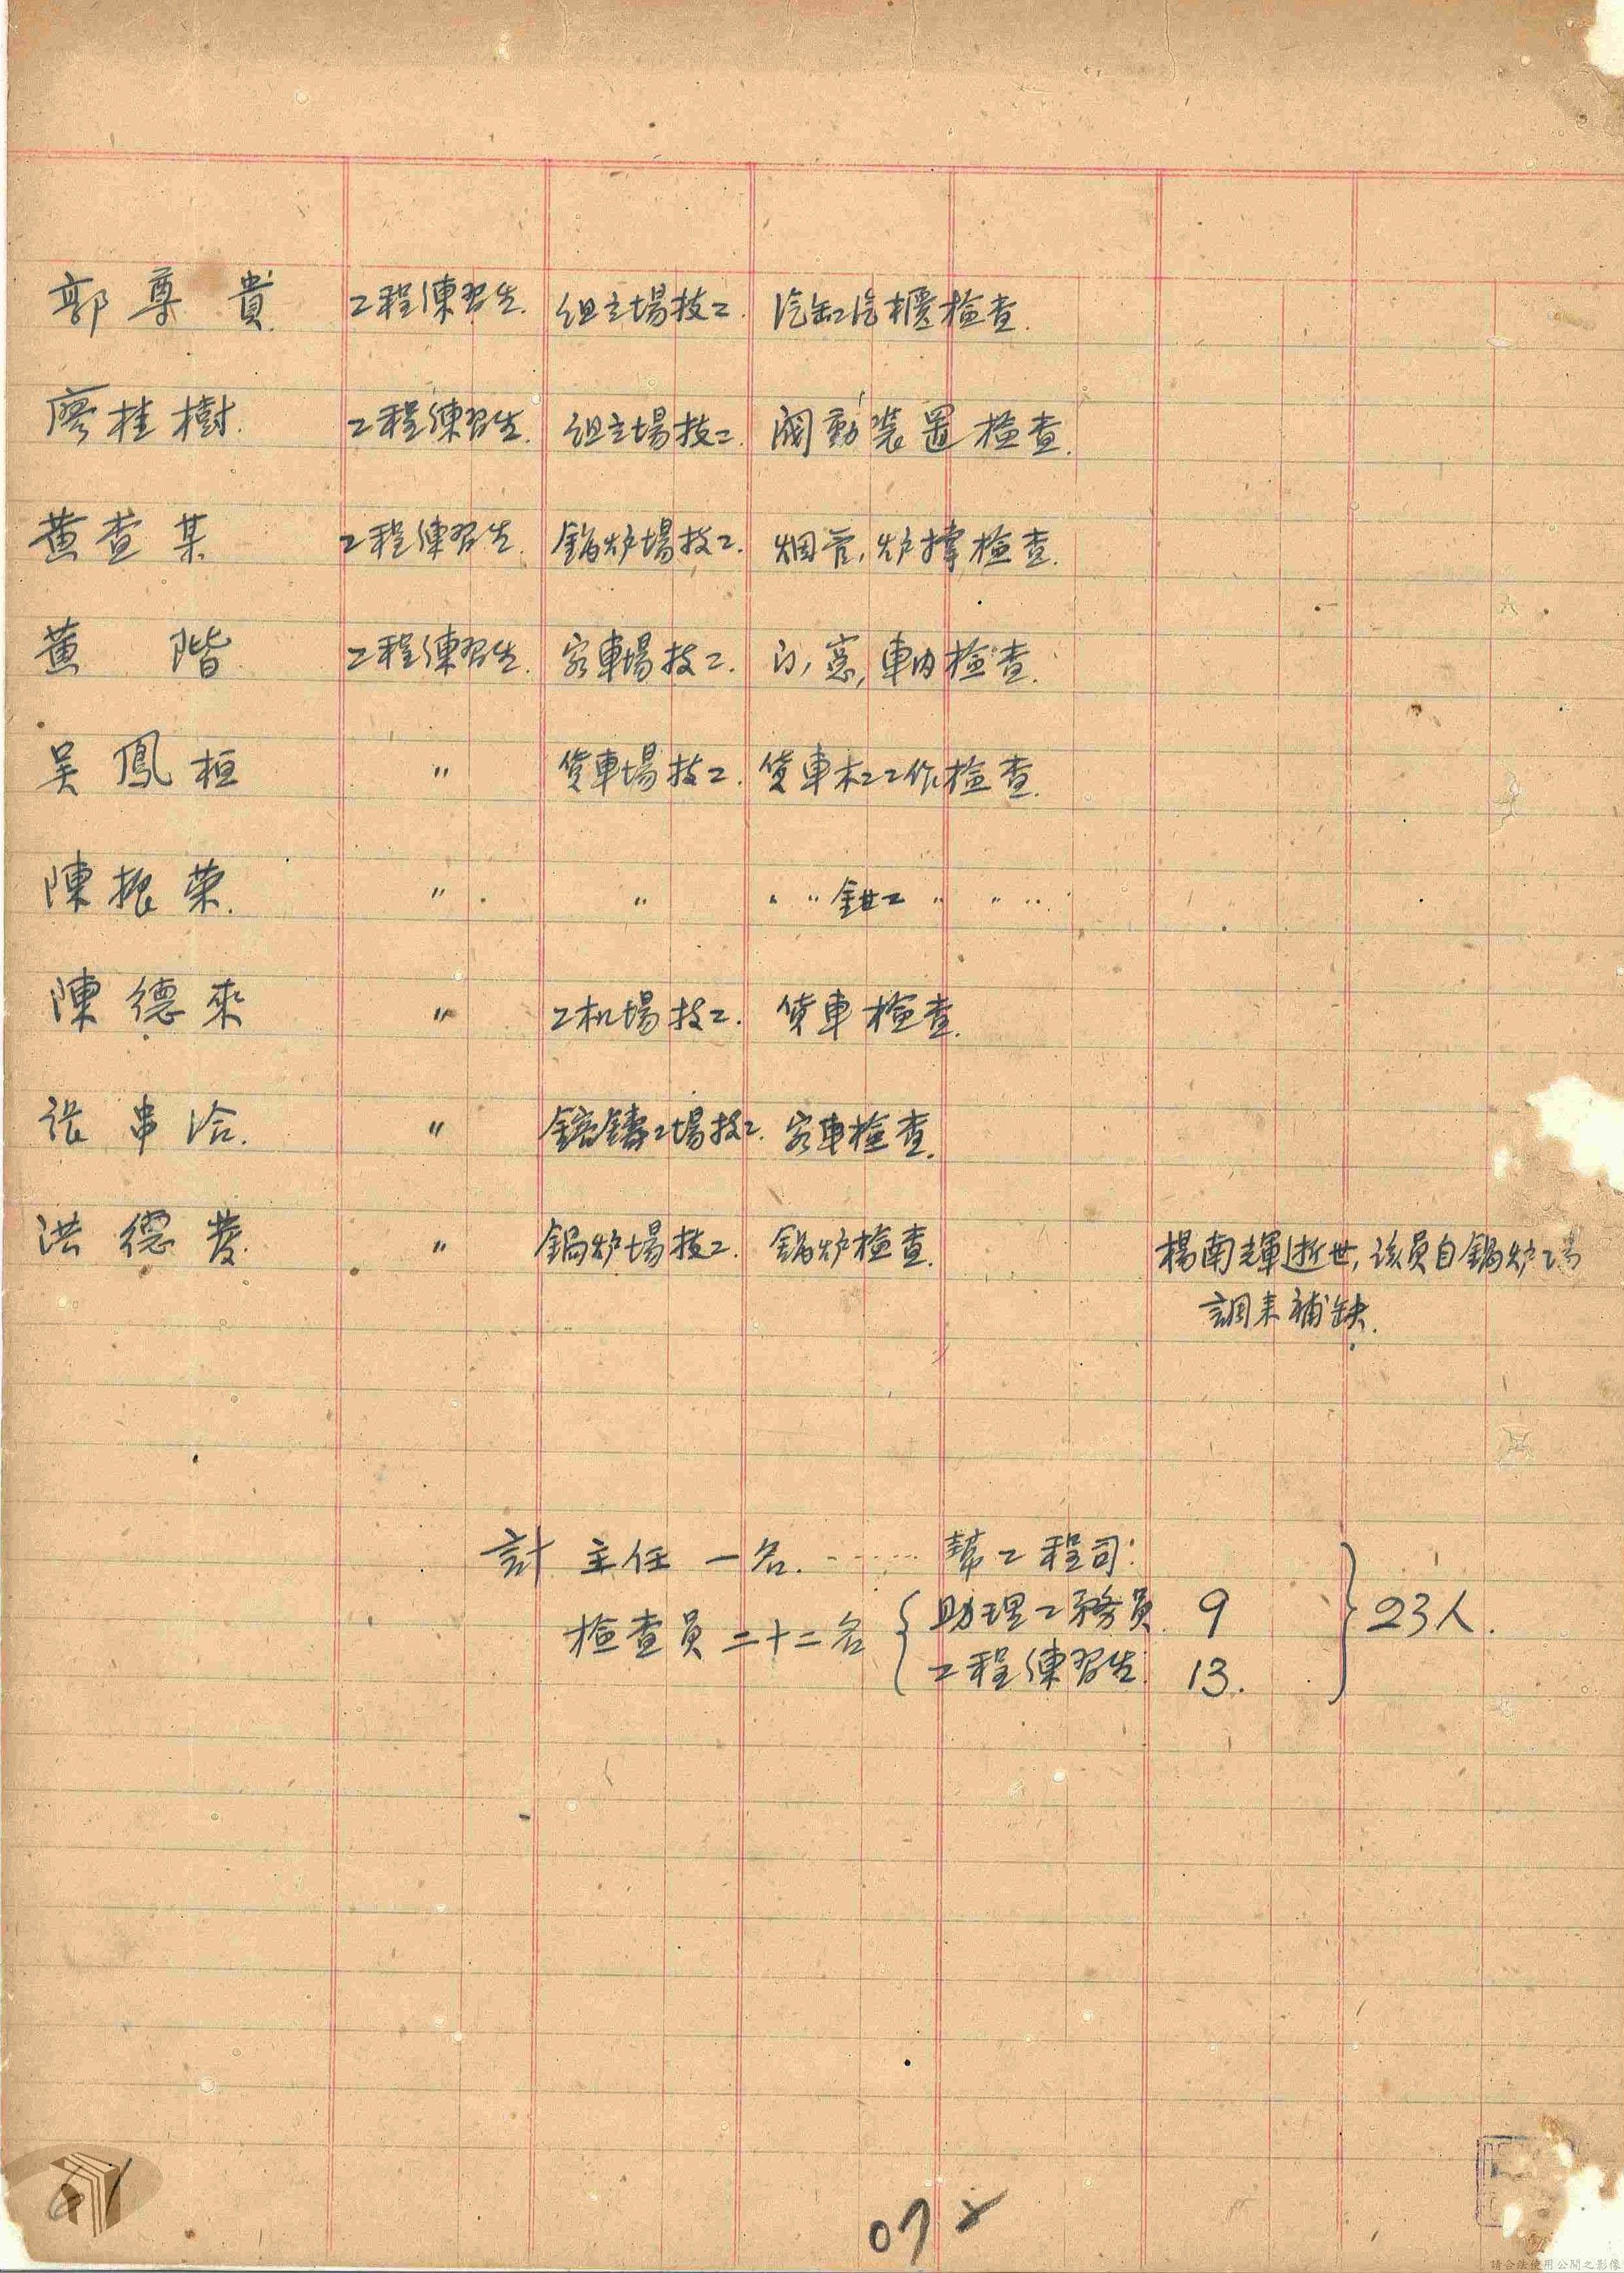 郭尊貴 工程練習生. 組立場技工. 汽缸汽櫃檢查.
廖桂樹. 工程練習生. 組立場技工. 阀動裝置檢查.
黃查某 工程練習生. 鍋炉場技工. 烟管,炉撑檢查.
黃 階 工程練習生. 客車場技工. 门,窓,車内檢查.
吳鳳桓 〃 貨車場技工. 貨車木工工作檢查.
陳振荣. 〃 〃 〃 〃 鉗工 〃 〃 〃
陳德來 〃 工机場技工. 貨車檢查.
张串治. 〃 鎔鑄工場技工. 客車檢查.
洪德發. 〃 鍋炉場技工. 鍋炉檢查. 楊南輝逝世,该員自鍋炉場
調来補缺.
計 主任 一名. ...... 幫工程司.
檢查員 二十二名 { 助理工務員. 9 } 23人.
工程練習生. 13.
072
請合法使用公開之影像